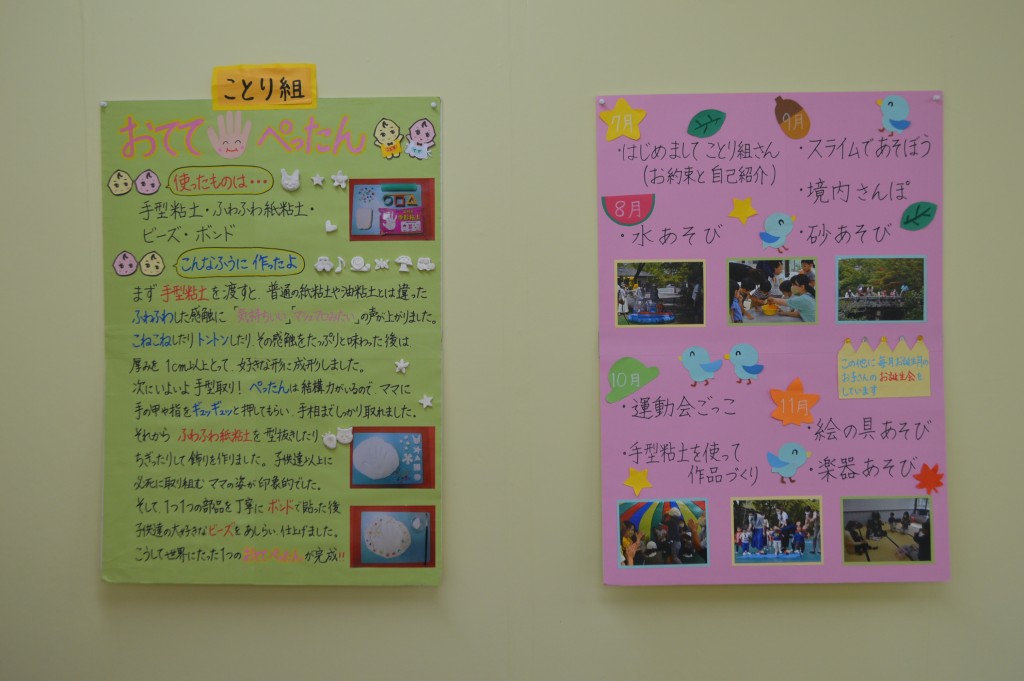 ことり組
おてて ぺったん
使ったものは・・・
手型粘土・ふわふわ紙粘土・
ビーズ・ボンド
こんなふうに 作ったよ
まず 手型粘土を渡すと、普通の紙粘土や油粘土とは違った
ふわふわした感触に「気持ちいい」「マシュマロみたい」の声が上がりました。
こねこねしたり トントンしたり、その感触をたっぷりと味わった後は
厚みを 1cm以上とって、好きな形に成形しました。
次にいよいよ 手型取り! ぺったんは結構力がいるので、ママに
手の甲や指をギュッギュッと押してもらい、手相までしっかり取れました。
それから ふわふわ紙粘土を 型抜きしたり
ちぎったりして 飾りを作りました。子供達以上に
必死に取り組む ママの姿が 印象的でした。
そして、1つ1つの部品を丁寧に ボンドで貼った後
子供達の大好きなビーズをあしらい、仕上げました。
こうして世界にたった1つの が完成!!
7月
・はじめまして ことり組さん
(お約束と 自己紹介)
8月
・水あそび
9月
・スライムであそぼう
・境内さんぽ
・砂あそび
この他に 毎月お誕生月の
お子さんの お誕生会を
しています
10月
・運動会ごっこ
・手型粘土を使って
作品づくり
11月
・絵の具あそび
・楽器あそび